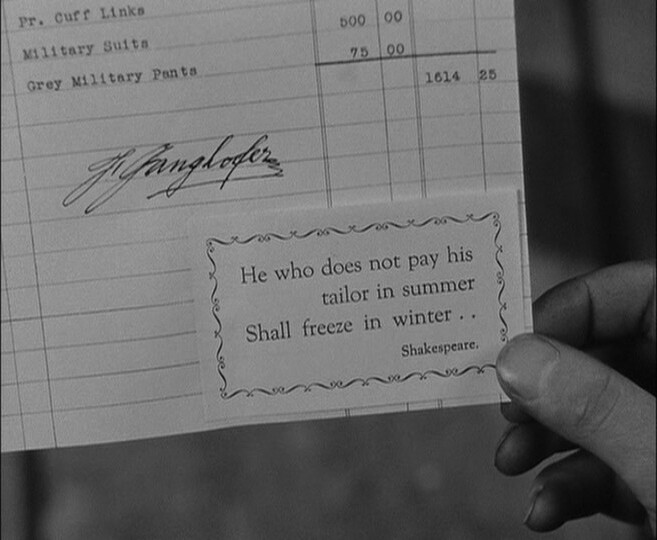 Pr. Cuff Links 500 00
Military Suits 75 00
Grey Military Pants 1614 25
H. Ganghofer
He who does not pay his
tailor in summer
Shall freeze in winter . .
Shakespeare.